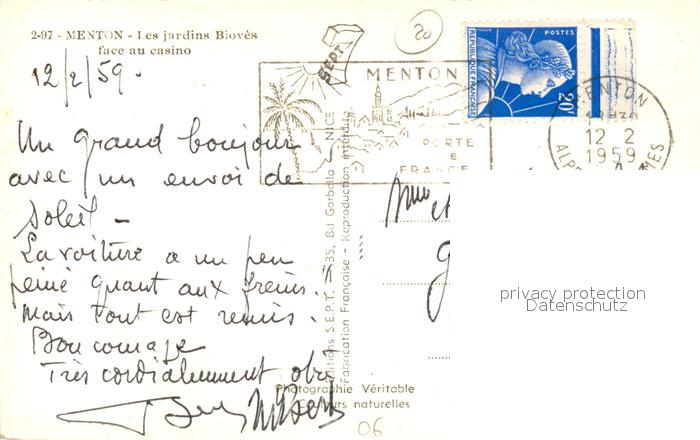 2-97 - MENTON - Les jardins Biovès
face au casino
12/2/59.
Un grand bonjour
avec un envoi de
soleil -
La voiture a un peu
peiné quant aux freins.
mais tout est remis.
Bon courage
Très cordialement
SEPT
MENTON
PORTE
E
FRANCE
20
POSTES
REPUBLIQUE FRANÇAISE
20F
MENTON
12 2
1959
ALP MES
Editions S.E.P.T. 35, Bd Gorbella - NICE
Fabrication Française - Reproduction interdite
Mme
privacy protection
Datenschutz
Photographie Véritable
Couleurs naturelles
06